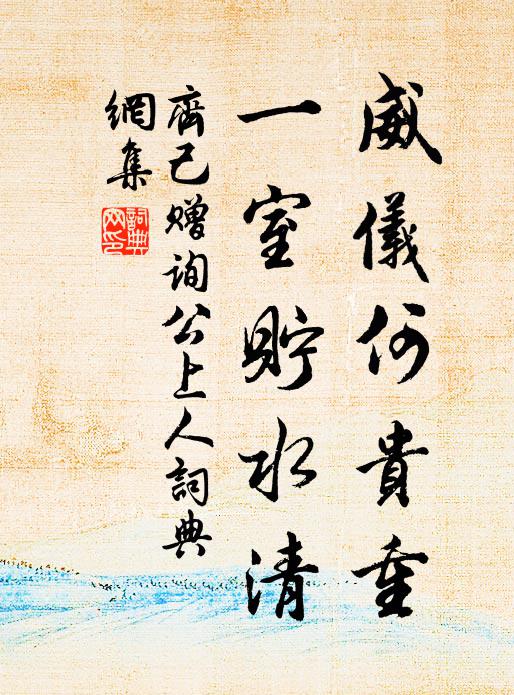 威儀何貴重
一室貯水清
齊己贈詢公上人詞典
網集
詞典
网印